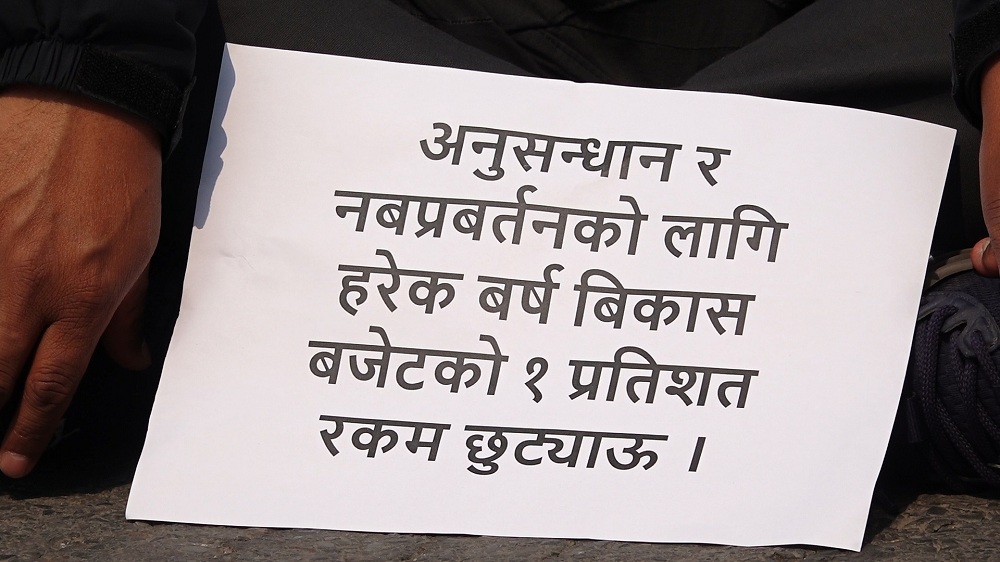 अनुसन्धान र
नबप्रबर्तनको लागि
हरेक बर्ष बिकास
बजेटको १ प्रतिशत
रकम छुट्याऊ ।